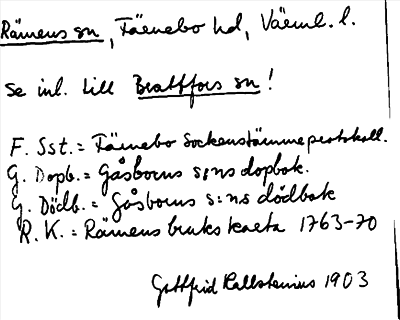 Rämens sn, Färnebo hd, Värml. l.
se inl. till Brattfors sn!
F. Sst. = Färnebo Sockenstämmoprotokoll.
G. Dopb. = Gåsborns s:ns dopbok.
G. Dödb. = Gåsborns s:ns dödbok
R. K. = Rämens bruks karta 1763-70
Gottfrid Kallstenius 1903